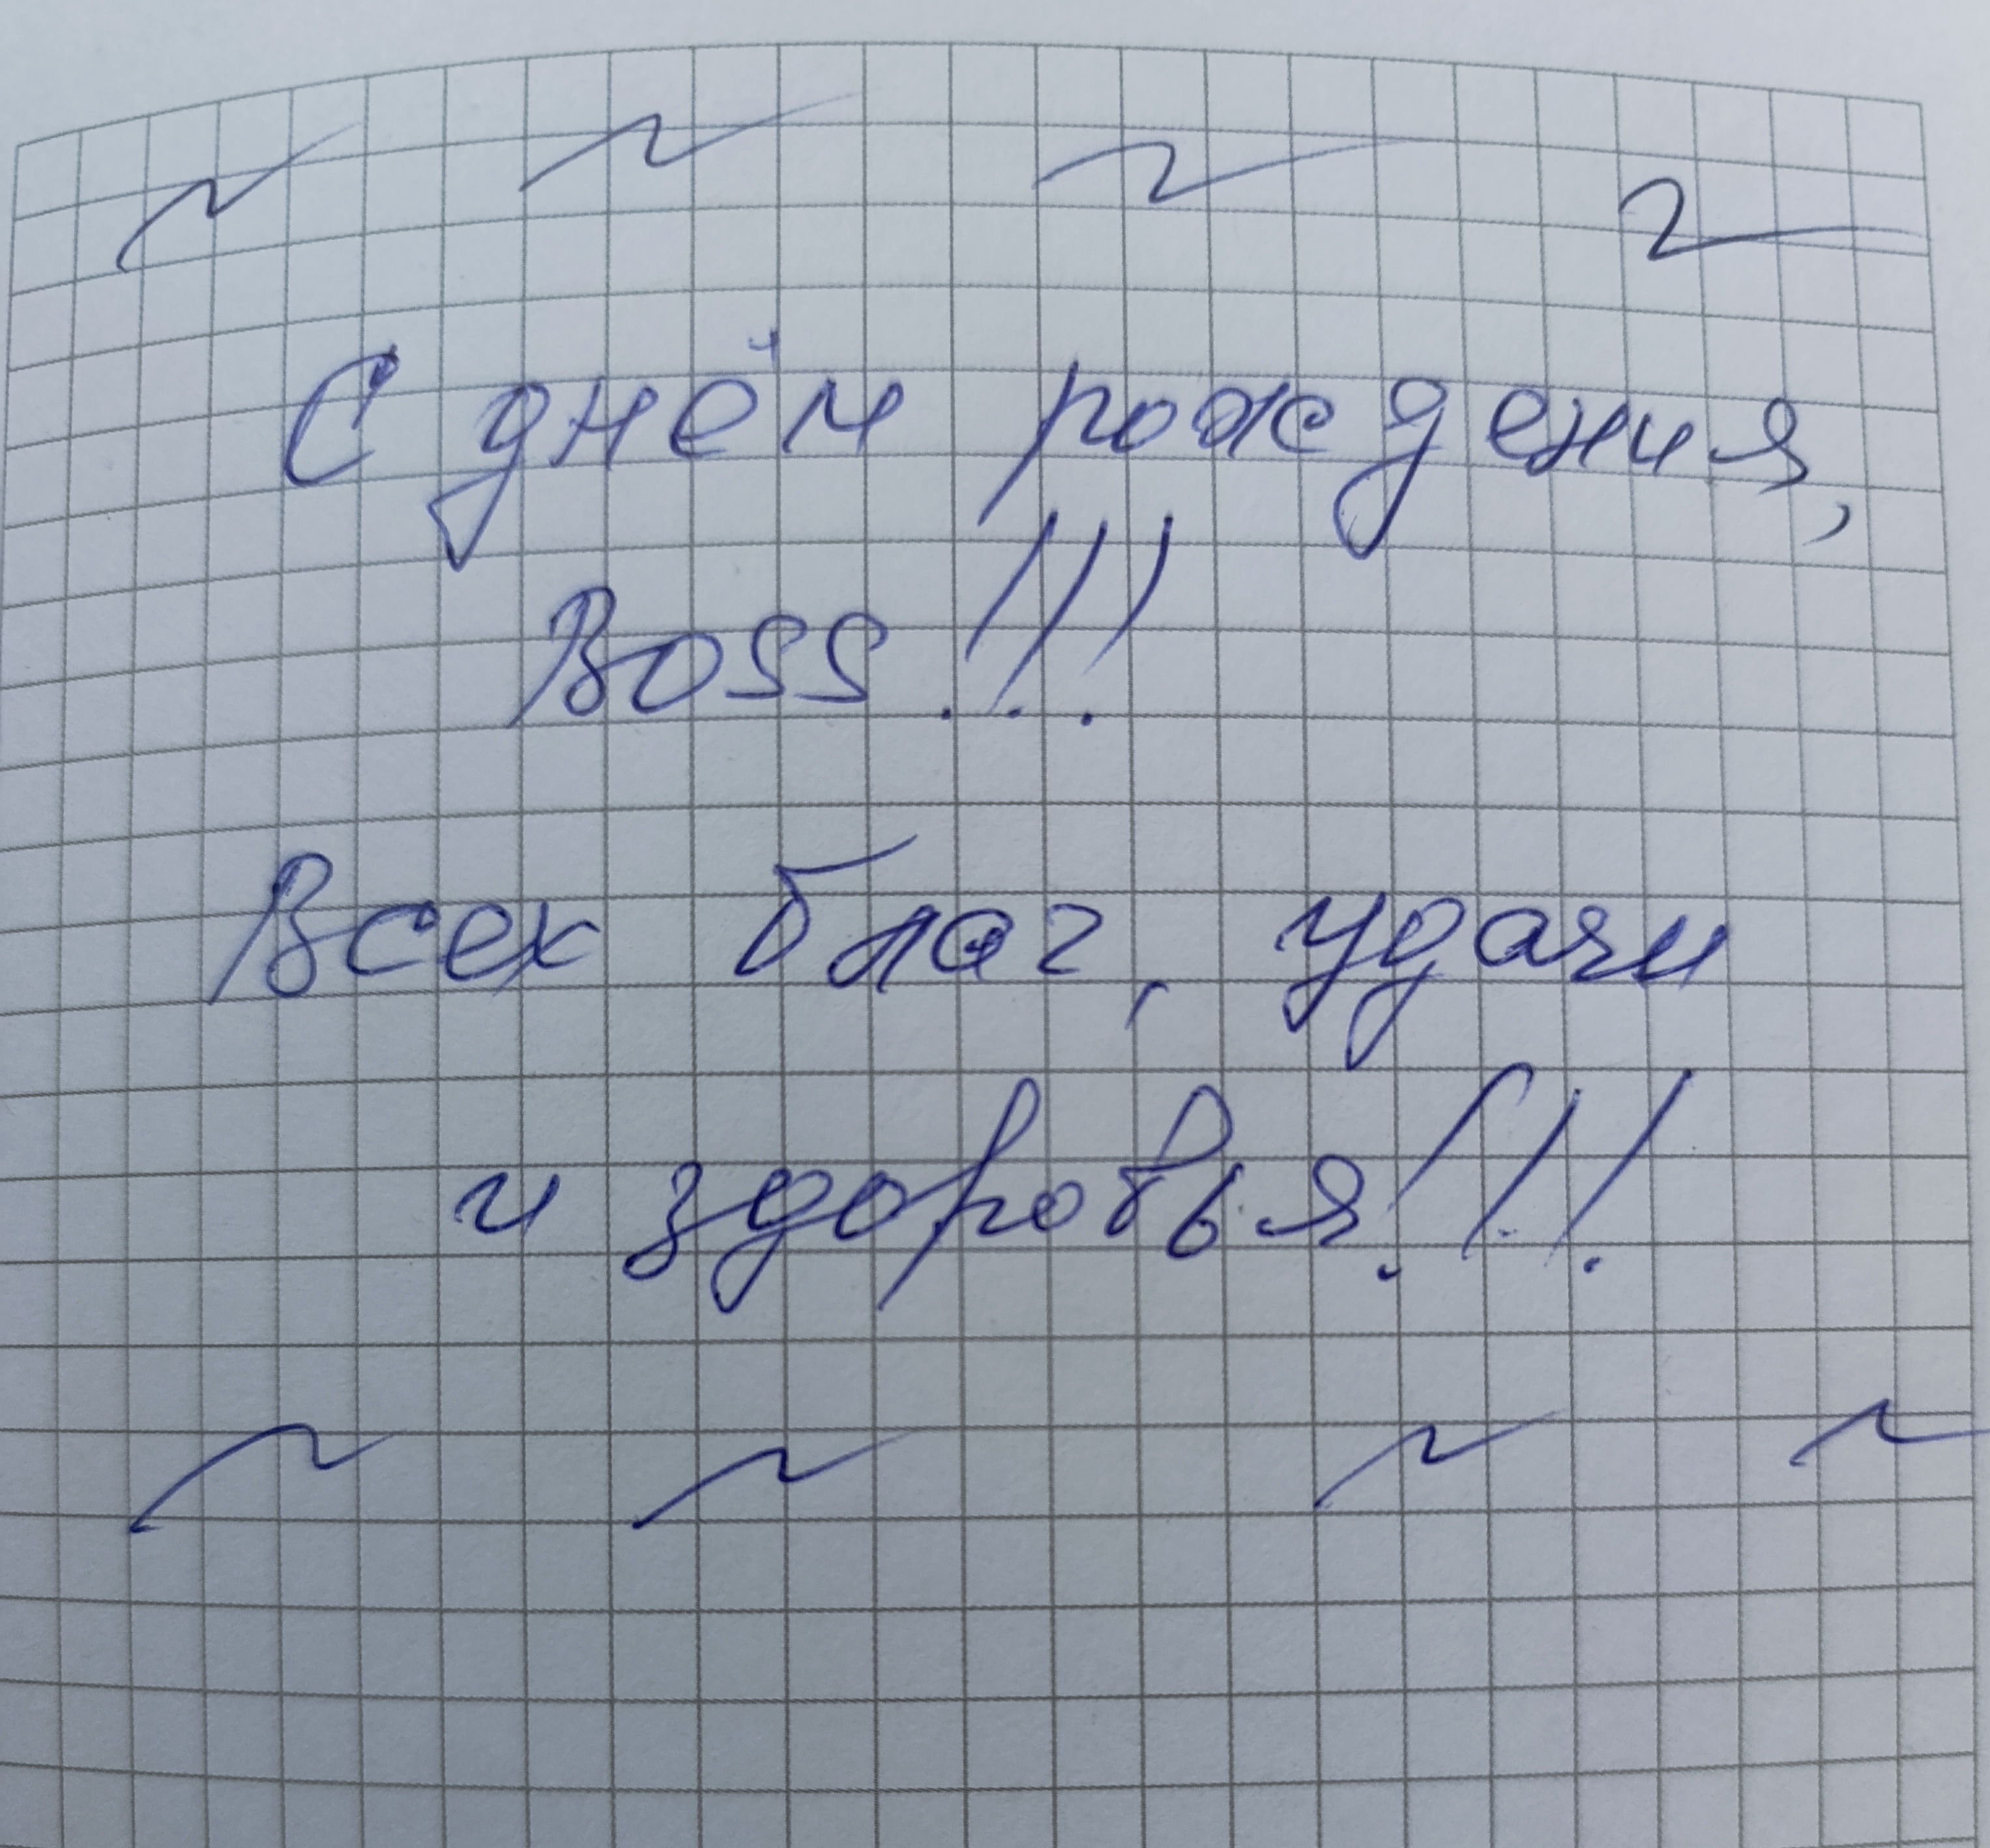 С днём рождения,
Boss!!!
Всех благ, удачи
и здоровья!!!